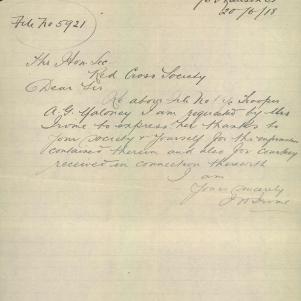 20/6/18
File No 5921
The Hon Sec
Red Cross Society
Dear Sir
Re above File No Trooper
A. G. Maloney I am requested by Mrs
Irvine to express her thanks to
your society & yourself for the information
contained therein and also for courtesy
received in connection therewith
I am
Yours Sincerely
Irvine